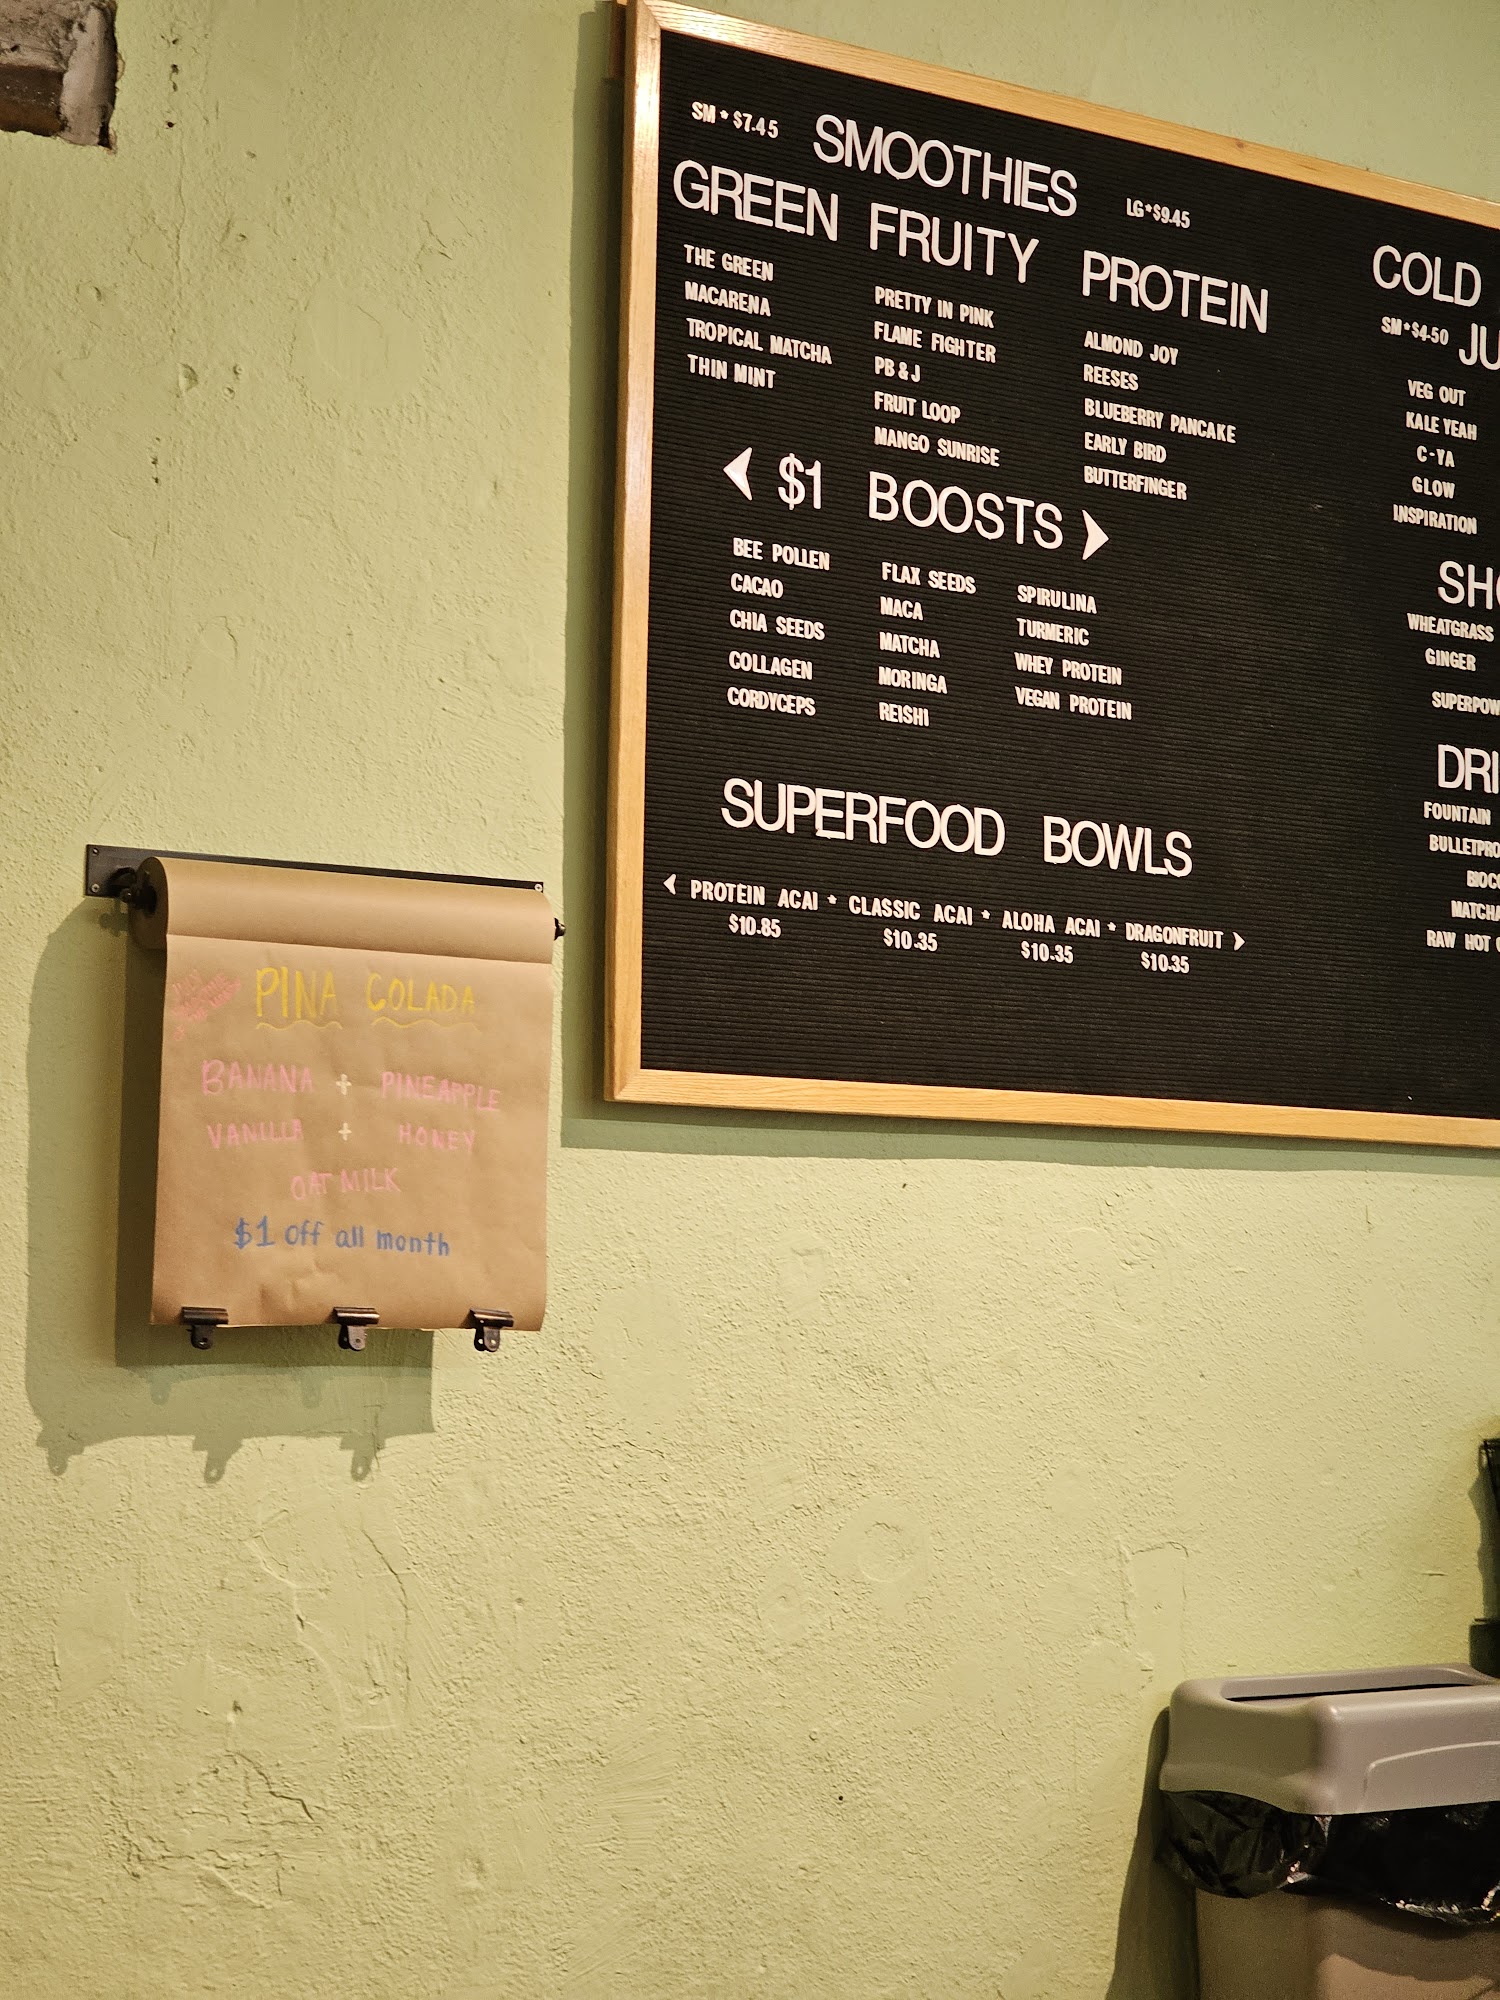 SM * $7.45
SMOOTHIES
LG * $9.45
GREEN
THE GREEN
MACARENA
TROPICAL MATCHA
THIN MINT
FRUITY
PRETTY IN PINK
FLAME FIGHTER
PB & J
FRUIT LOOP
MANGO SUNRISE
PROTEIN
ALMOND JOY
REESES
BLUEBERRY PANCAKE
EARLY BIRD
BUTTERFINGER
$1 BOOSTS
BEE POLLEN
CACAO
CHIA SEEDS
COLLAGEN
CORDYCEPS
FLAX SEEDS
MACA
MATCHA
MORINGA
REISHI
SPIRULINA
TURMERIC
WHEY PROTEIN
VEGAN PROTEIN
SUPERFOOD BOWLS
PROTEIN ACAI * CLASSIC ACAI * ALOHA ACAI * DRAGONFRUIT
$10.85 $10.35 $10.35 $10.35
COLD
SM * $4.50
VEG OUT
KALE YEAH
C-YA
GLOW
INSPIRATION
WHEATGRASS
GINGER
FOUNTAIN
RAW HOT
PINA COLADA
BANANA + PINEAPPLE
VANILLA + HONEY
OAT MILK
$1 off all month